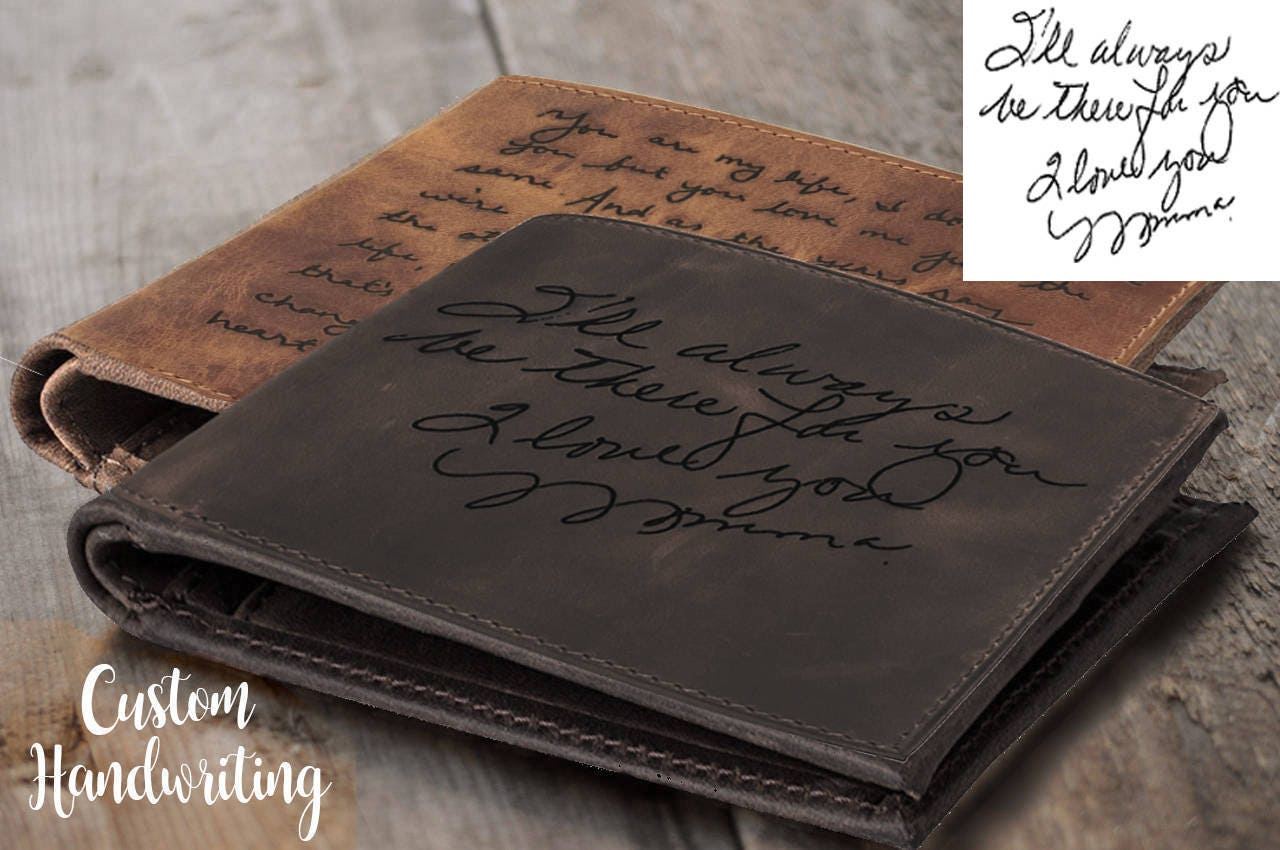 I'll always
be there for you
I love you
Momma.
You are my life, I do
you but you love me ju
same. And as the years
we're the
the ot
life,
that's
chang
heart
I'll always
be there for you
I love you
Momma.
Custom
Handwriting